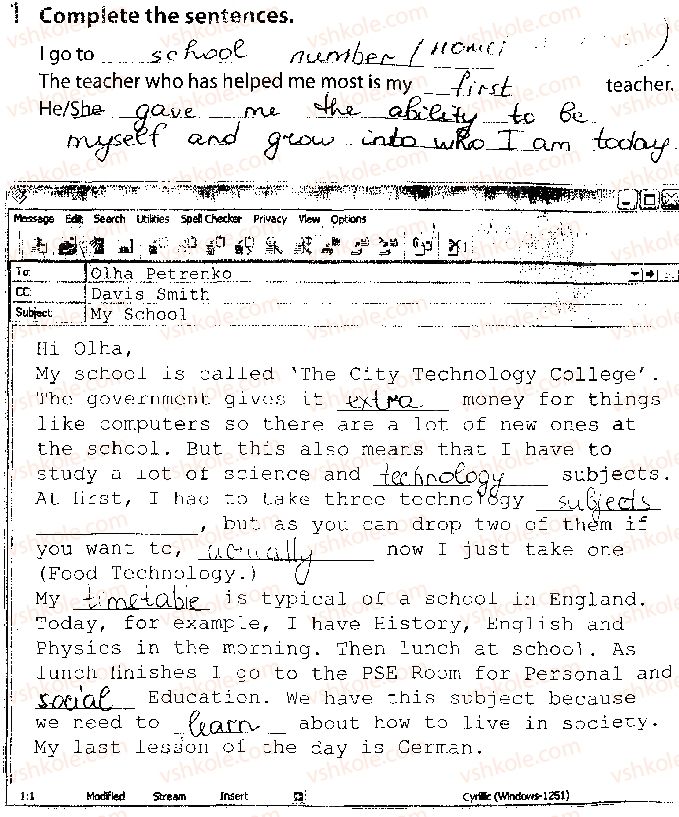 1 Complete the sentences.
I go to school number /
The teacher who has helped me most is my first teacher.
He/She gave me the ability to be
myself and grow into who I am today.
Message Edit Search Utilities Spell Checker Privacy View Options
To: Olha Petrenko
CC: Davis Smith
Subject My School
Hi Olha,
My school is called 'The City Technology College'.
The government gives it extra money for things
like computers so there are a lot of new ones at
the school. But this also means that I have to
study a lot of science and technology subjects.
At first, I had to take three technology subjects
, but as you can drop two of them if
you want to, actually now I just take one
(Food Technology.)
My timetable is typical of a school in England.
Today, for example, I have History, English and
Physics in the morning. Then lunch at school. As
lunch finishes I go to the PSE Room for Personal and
social Education. We have this subject because
we need to learn about how to live in society.
My last lesson of the day is German.
1:1 Modified Stream Insert Cyrillic (Windows-1251)
vshkole.com